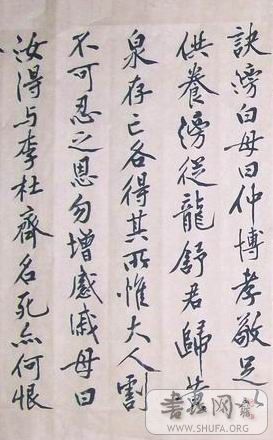 訣滂白母曰仲博孝敬足以
供養滂從龍舒君歸黃
泉存亡各得其所惟大人割
不可忍之恩勿增感戚母曰
汝得与李杜齊名死亦何恨
书法网
WWW.SHUFA.ORG